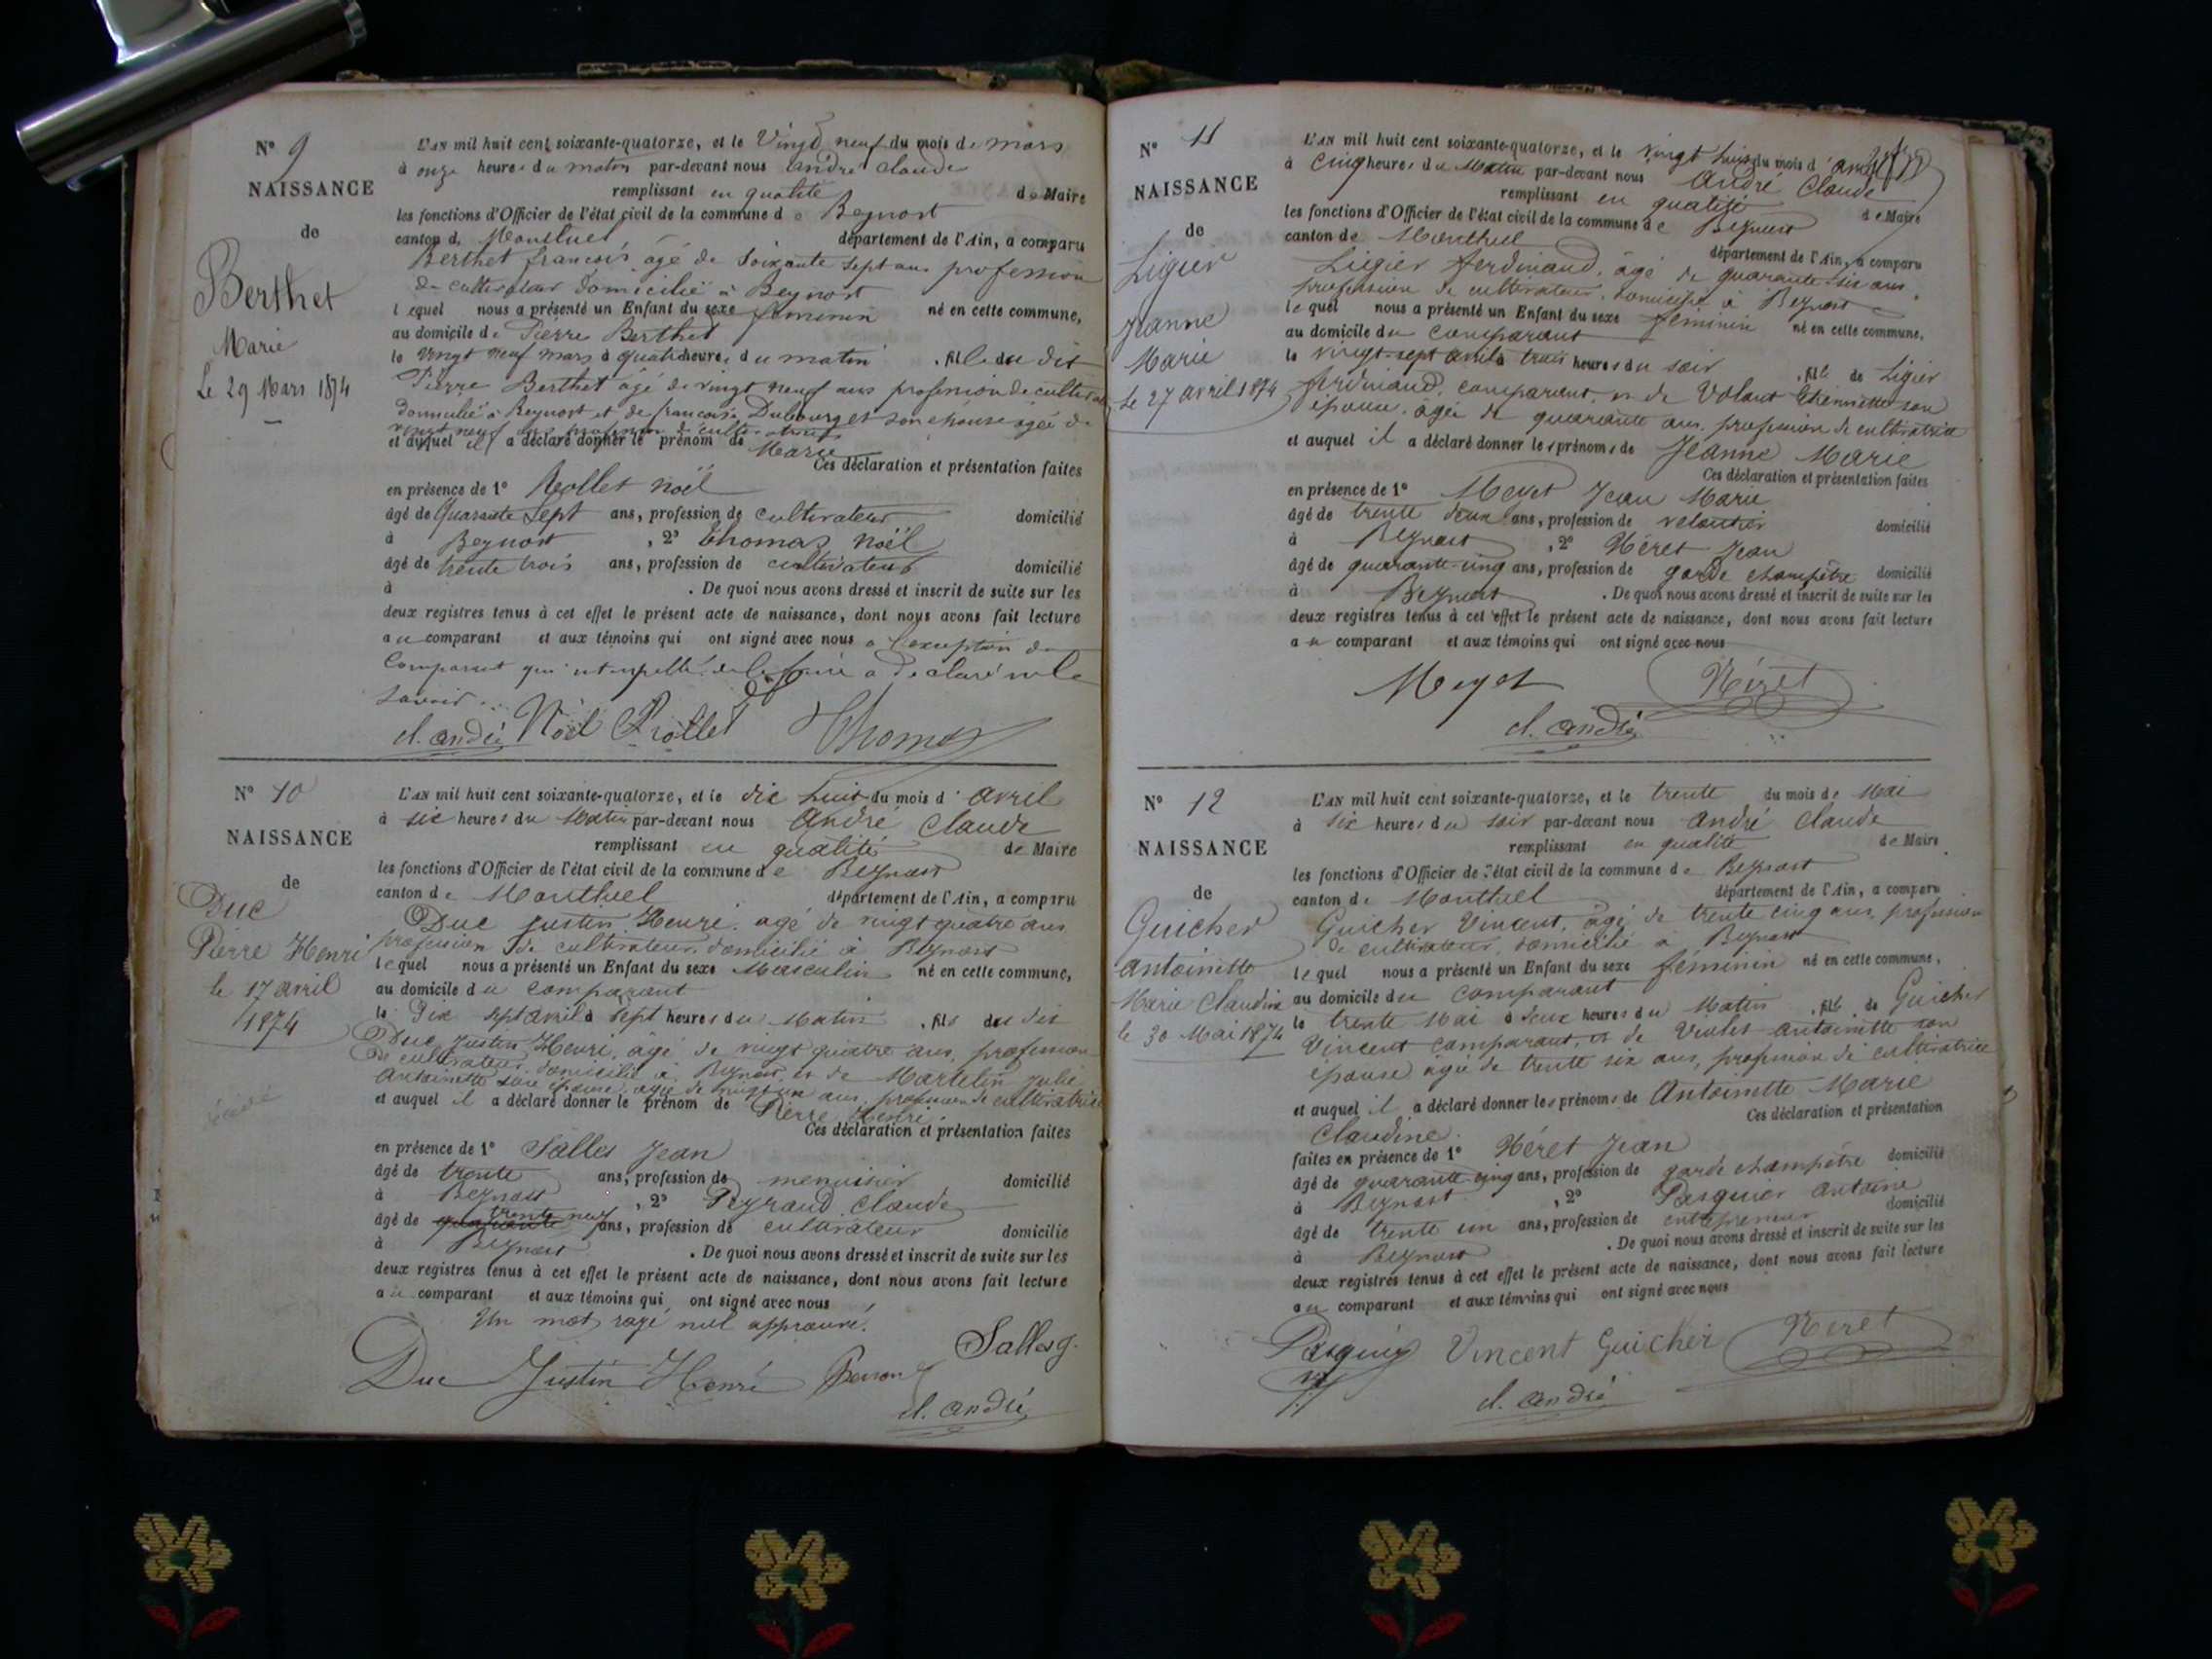 N° 9
NAISSANCE
de
Berthet
Marie
Le 29 Mars 1874
L'AN mil huit cent soixante-quatorze, et le Vingt neuf du mois de mars
à onze heures du matin par-devant nous andré claude
remplissant en qualité de Maire
les fonctions d'Officier de l'état civil de la commune de Beynost
canton de Montluel département de l'Ain, a comparu
Berthet francois, âgé de Soixante sept ans profession
de cultivateur domicilié à Beynost
lequel nous a présenté un Enfant du sexe féminin né en cette commune,
au domicile de Pierre Berthet
le vingt neuf mars à quatre heures du matin , fille du dit
Pierre Berthet âgé de vingt neuf ans profession de cultivat
domicilié à Beynost et de francoise Dubourget son épouse âgée de
vingt neuf ans profession de cultivatrice
et auquel il a déclaré donner le prénom de Marie
Ces déclaration et présentation faites
en présence de 1° Rollet noël
âgé de Quarante Sept ans, profession de cultivateur domicilié
à Beynost , 2° Thomas noël
âgé de trente trois ans, profession de cultivateur domicilié
à . De quoi nous avons dressé et inscrit de suite sur les
deux registres tenus à cet effet le présent acte de naissance, dont nous avons fait lecture
au comparant et aux témoins qui ont signé avec nous a l'exception du
Comparant qui interpellé de le faire a déclaré ne le
savoir
cl. andré Noël Rollet Thomas
N° 10
NAISSANCE
de
Duc
Pierre Henri
le 17 avril
1874
L'AN mil huit cent soixante-quatorze, et le dix huit du mois d'avril
à six heures du Matin par-devant nous André Claude
remplissant en qualité de Maire
les fonctions d'Officier de l'état civil de la commune de Beynost
canton de Montluel département de l'Ain, a comparu
Duc Justin Henri, âgé de vingt quatre ans
profession de cultivateur, domicilié à Beynost
lequel nous a présenté un Enfant du sexe Masculin né en cette commune,
au domicile du comparant
le Dix sept avril à sept heures du Matin , fils du dit
Duc Justin Henri, âgé de vingt quatre ans, profession
de cultivateur, domicilié à Beynost et de Martelin Julie
Antoinette son épouse, âgée de vingt un ans, profession de cultivatrice
et auquel il a déclaré donner le prénom de Pierre Henri.
Ces déclaration et présentation faites
en présence de 1° Salles Jean
âgé de trente ans, profession de menuisier domicilié
à Beynost , 2° Peyraud Claude
trente neuf
âgé de quarante ans, profession de cultivateur domicilié
à Beynost . De quoi nous avons dressé et inscrit de suite sur les
deux registres tenus à cet effet le présent acte de naissance, dont nous avons fait lecture
au comparant et aux témoins qui ont signé avec nous
Un mot rayé nul approuvé.
Salles J.
Duc Justin Henri
cl. andré
N° 11
NAISSANCE
de
Ligier
Jeanne
Marie
le 27 avril 1874
L'AN mil huit cent soixante-quatorze, et le vingt huit du mois d'avril
à Cinq heures du Matin par-devant nous André Claude
remplissant en qualité de Maire
les fonctions d'Officier de l'état civil de la commune de Beynost
canton de Montluel département de l'Ain, a comparu
Ligier ferdinand, âgé de quarante-six ans,
profession de cultivateur, domicilié à Beynost
lequel nous a présenté un Enfant du sexe féminin né en cette commune,
au domicile du comparant
le vingt-sept avril à trois heures du soir , fille de Ligier
ferdinand, comparant, et de Volant Etiennette son
épouse, âgée de quarante ans, profession de cultivatrice
et auquel il a déclaré donner les prénoms de Jeanne Marie
Ces déclaration et présentation faites
en présence de 1° Meyet Jean Marie
âgé de trente deux ans, profession de veloutier domicilié
à Beynost , 2° Néret Jean
âgé de quarante-cinq ans, profession de garde champêtre domicilié
à Beynost . De quoi nous avons dressé et inscrit de suite sur les
deux registres tenus à cet effet le présent acte de naissance, dont nous avons fait lecture
au comparant et aux témoins qui ont signé avec nous
Meyet Néret
cl. andré
N° 12
NAISSANCE
de
Guicher
Antoinette
Marie Claudine
le 30 Mai 1874
L'AN mil huit cent soixante-quatorze, et le trente du mois de Mai
à six heures du soir par-devant nous André Claude
remplissant en qualité de Maire
les fonctions d'Officier de l'état civil de la commune de Beynost
canton de Montluel département de l'Ain, a comparu
Guicher Vincent, âgé de trente cinq ans, profession
de cultivateur, domicilié à Beynost
lequel nous a présenté un Enfant du sexe féminin né en cette commune,
au domicile du comparant
le trente Mai à deux heures du Matin , fille de Guicher
Vincent comparant, et de antoinette son
épouse âgée de trente six ans, profession de cultivatrice
et auquel il a déclaré donner les prénoms de Antoinette Marie
Ces déclaration et présentation
Claudine.
faites en présence de 1° Néret Jean
âgé de quarante-cinq ans, profession de garde champêtre domicilié
à Beynost , 2° Pasquier antoine
âgé de trente un ans, profession de entrepreneur domicilié
à Beynost . De quoi nous avons dressé et inscrit de suite sur les
deux registres tenus à cet effet le présent acte de naissance, dont nous avons fait lecture
au comparant et aux témoins qui ont signé avec nous
Pasquier Vincent Guicher Néret
cl. andré